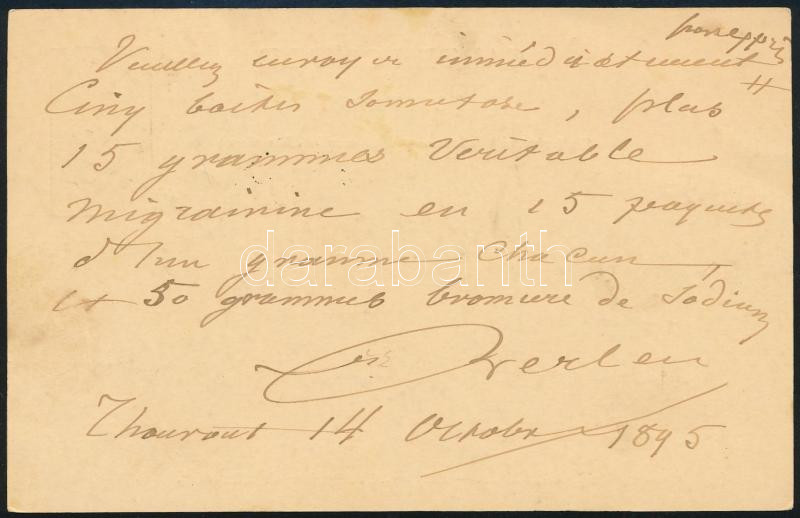 par exprès
Veuillez envoyer immédiatement
Cinq boites Somatose, plus
15 grammes Veritable
migrainine en 15 paquets
d'un gramme chacun,
et 50 grammes bromure de Sodium
Overleu
Thourout 14 Octobre 1895
darabanth